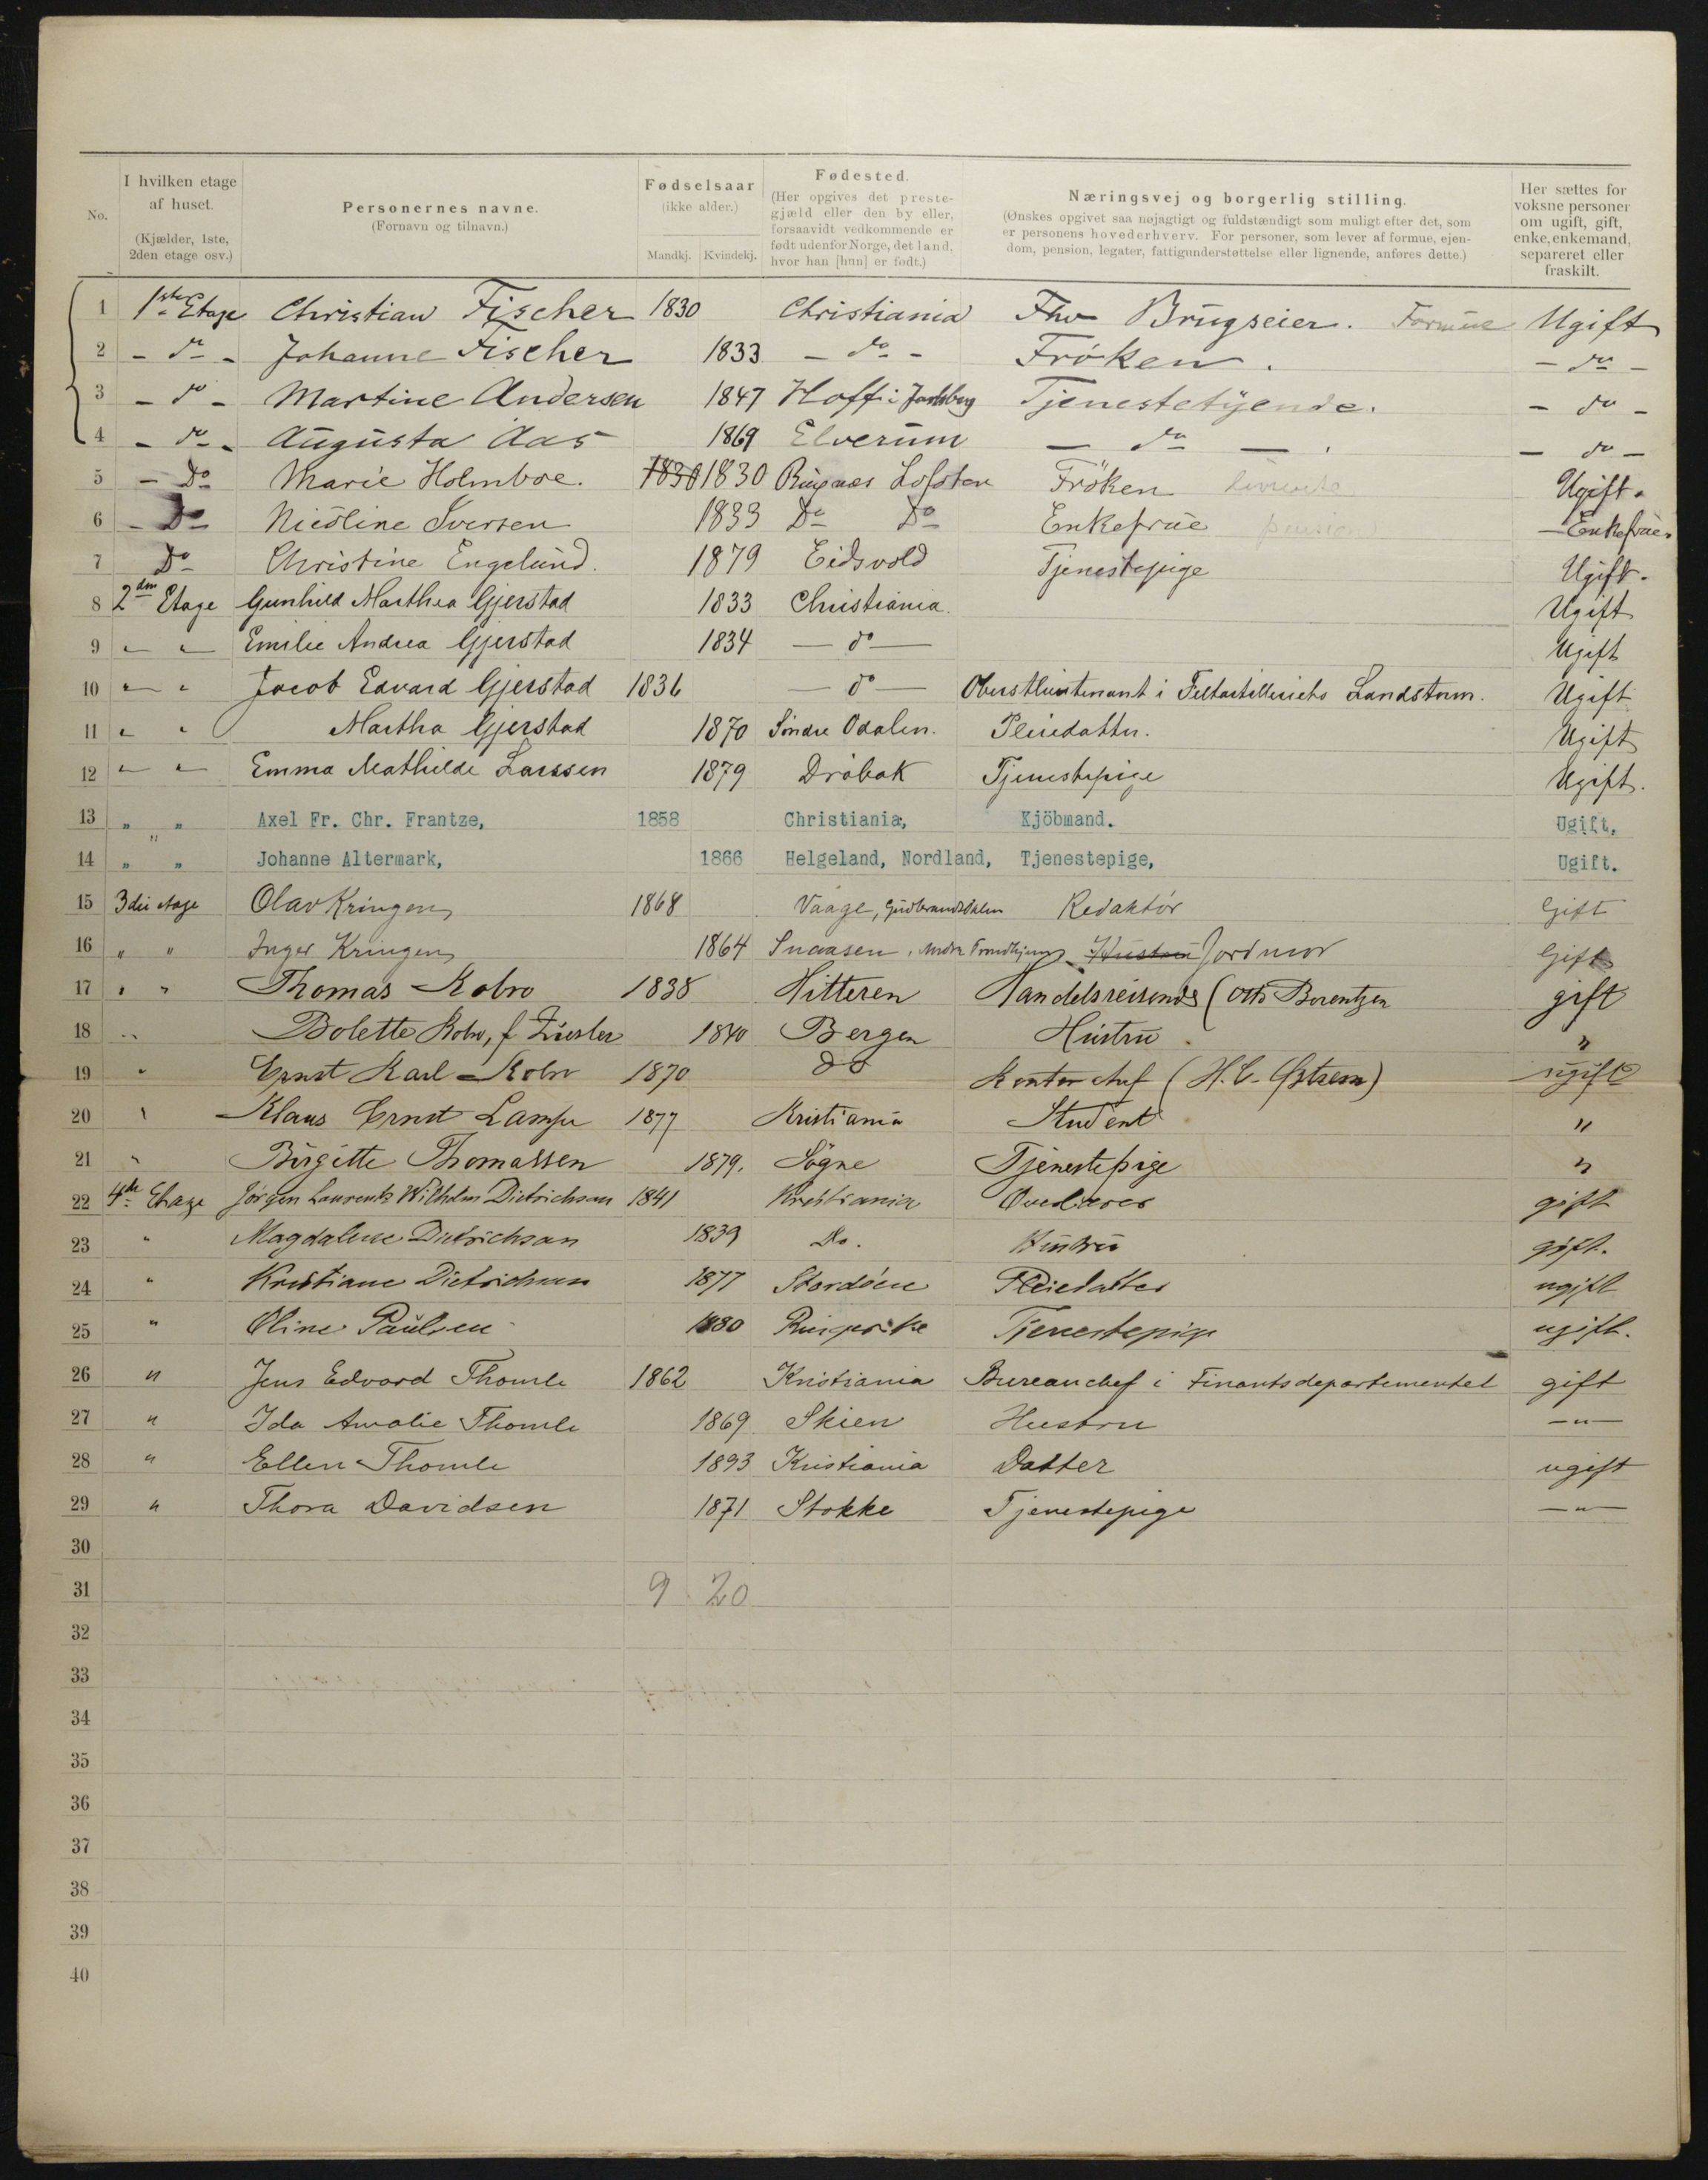 No.
I hvilken etage af huset. (Kjælder, 1ste, 2den etage osv.)
Personernes navne. (Fornavn og tilnavn.)
Fødselsaar (ikke alder.) Mandkj. Kvindekj.
Fødested. (Her opgives det prestegjæld eller den by eller, forsaavidt vedkommende er født udenfor Norge, det land, hvor han [hun] er født.)
Næringsvej og borgerlig stilling. (Ønskes opgivet saa nøjagtigt og fuldstændigt som muligt efter det, som er personens hovederhverv. For personer, som lever af formue, ejendom, pension, legater, fattigunderstøttelse eller lignende, anføres dette.)
Her sættes for voksne personer om ugift, gift, enke, enkemand, separeret eller fraskilt.
1 1ste Etage Christian Fischer 1830 Christiania Fhv Brugseier. Formue Ugift
2 - do - Johanne Fischer 1833 - do - Frøken. - do -
3 - do - Martine Andersen 1847 Hoff i Jarlsberg Tjenestetyende. - do -
4 - do - Augusta Aas 1869 Elverum - do - . - do -
5 - Do Marie Holmboe. 1830 1830 Lofoten Frøken Ugift.
6 - Do Nicoline Iversen 1833 Do Do Enkefrue pension Enkefrue.
7 Do Christine Engelund. 1879 Eidsvold Tjenestepige Ugift.
8 2den Etage Gunhild Marthea Gjerstad 1833 Christiania. Ugift
9 " " Emilie Andrea Gjerstad 1834 - do - Ugift
10 " " Jacob Edvard Gjerstad 1836 - do - Oberstløitenant i Feltartilleriets Landstorm. Ugift
11 " " Martha Gjerstad 1870 Søndre Odalen. Pleiedatter. Ugift
12 " " Emma Mathilde Larssen 1879 Drøbak Tjenestepige Ugift.
13 " " Axel Fr. Chr. Frantze, 1858 Christiania, Kjöbmand. Ugift,
14 " " " Johanne Altermark, 1866 Helgeland, Nordland, Tjenestepige, Ugift.
15 3die etage Olav Kringen 1868 Vaage, Gudbrandsdalen Redaktør Gift
16 " " Inger Kringen 1864 Snaasen, Nordre Trondhjem Hustru Jordmor Gift
17 " " Thomas Kobro 1838 Hitteren Handelsreisende (Otto Berentzen gift
18 " Bolette Kobro, f 1840 Bergen Hustru "
19 " Ernst Karl Kobro 1870 do Kontorchef (H. C. Østrem) ugift
20 " Klaus Ernst Lampe 1877 Kristiania Student "
21 " Birgitte Thomassen 1879. Søgne Tjenestepige "
22 4de Etage Jørgen Laurentz Wilhelm Dietrichson 1841 Kristiania gift
23 " Magdalene Dietrichson 1839 Do. Hustru gift.
24 " Kristiane Dietrichson 1877 Stordøen Pleiedatter ugift
25 " Oline Paulsen 1880 Ringerike Tjenestepige ugift.
26 " Jens Edvard Thomle 1862 Kristiania Bureauchef i Finantsdepartementet gift
27 " Ida Amalie Thomle 1869 Skien Hustru - " -
28 " Ellen Thomle 1893 Kristiania Datter ugift
29 " Thora Davidsen 1871 Stokke Tjenestepige - " -
30
31 9 20
32
33
34
35
36
37
38
39
40